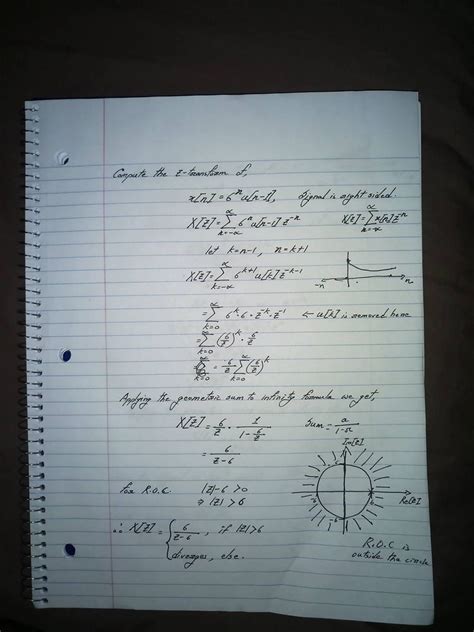 Compute the z-transform of,
x[n] = 6ⁿ u[n-1], signal is right sided.
X[Z] = ∑_{n=-∞}^{∞} 6ⁿ u[n-1] z⁻ⁿ    X[z] = ∑_{n=-∞}^{∞} x[n] z⁻ⁿ
let k=n-1, n=k+1
X[Z] = ∑_{k=-∞}^{∞} 6^{k+1} u[k] z^{-k-1}    -n    n
= ∑_{k=0}^{∞} 6^k · 6 · z^{-k} · z^{-1}    ← u[k] is removed here
= ∑_{k=0}^{∞} (6/z)^k · 6/z
= 6/z ∑_{k=0}^{∞} (6/z)^k
Applying the geometric sum to infinity formula we get,
X[Z] = 6/z · 1/(1 - 6/z)    Sum = a/(1-r)
= 6/(z-6)
Im[Z]
-6    6    Re[Z]
-6
for R.O.C.    |z|-6 > 0
⇒ |z| > 6
∴ X[Z] = { 6/(z-6), if |z|>6
diverges, else.
R.O.C is
outside the circle